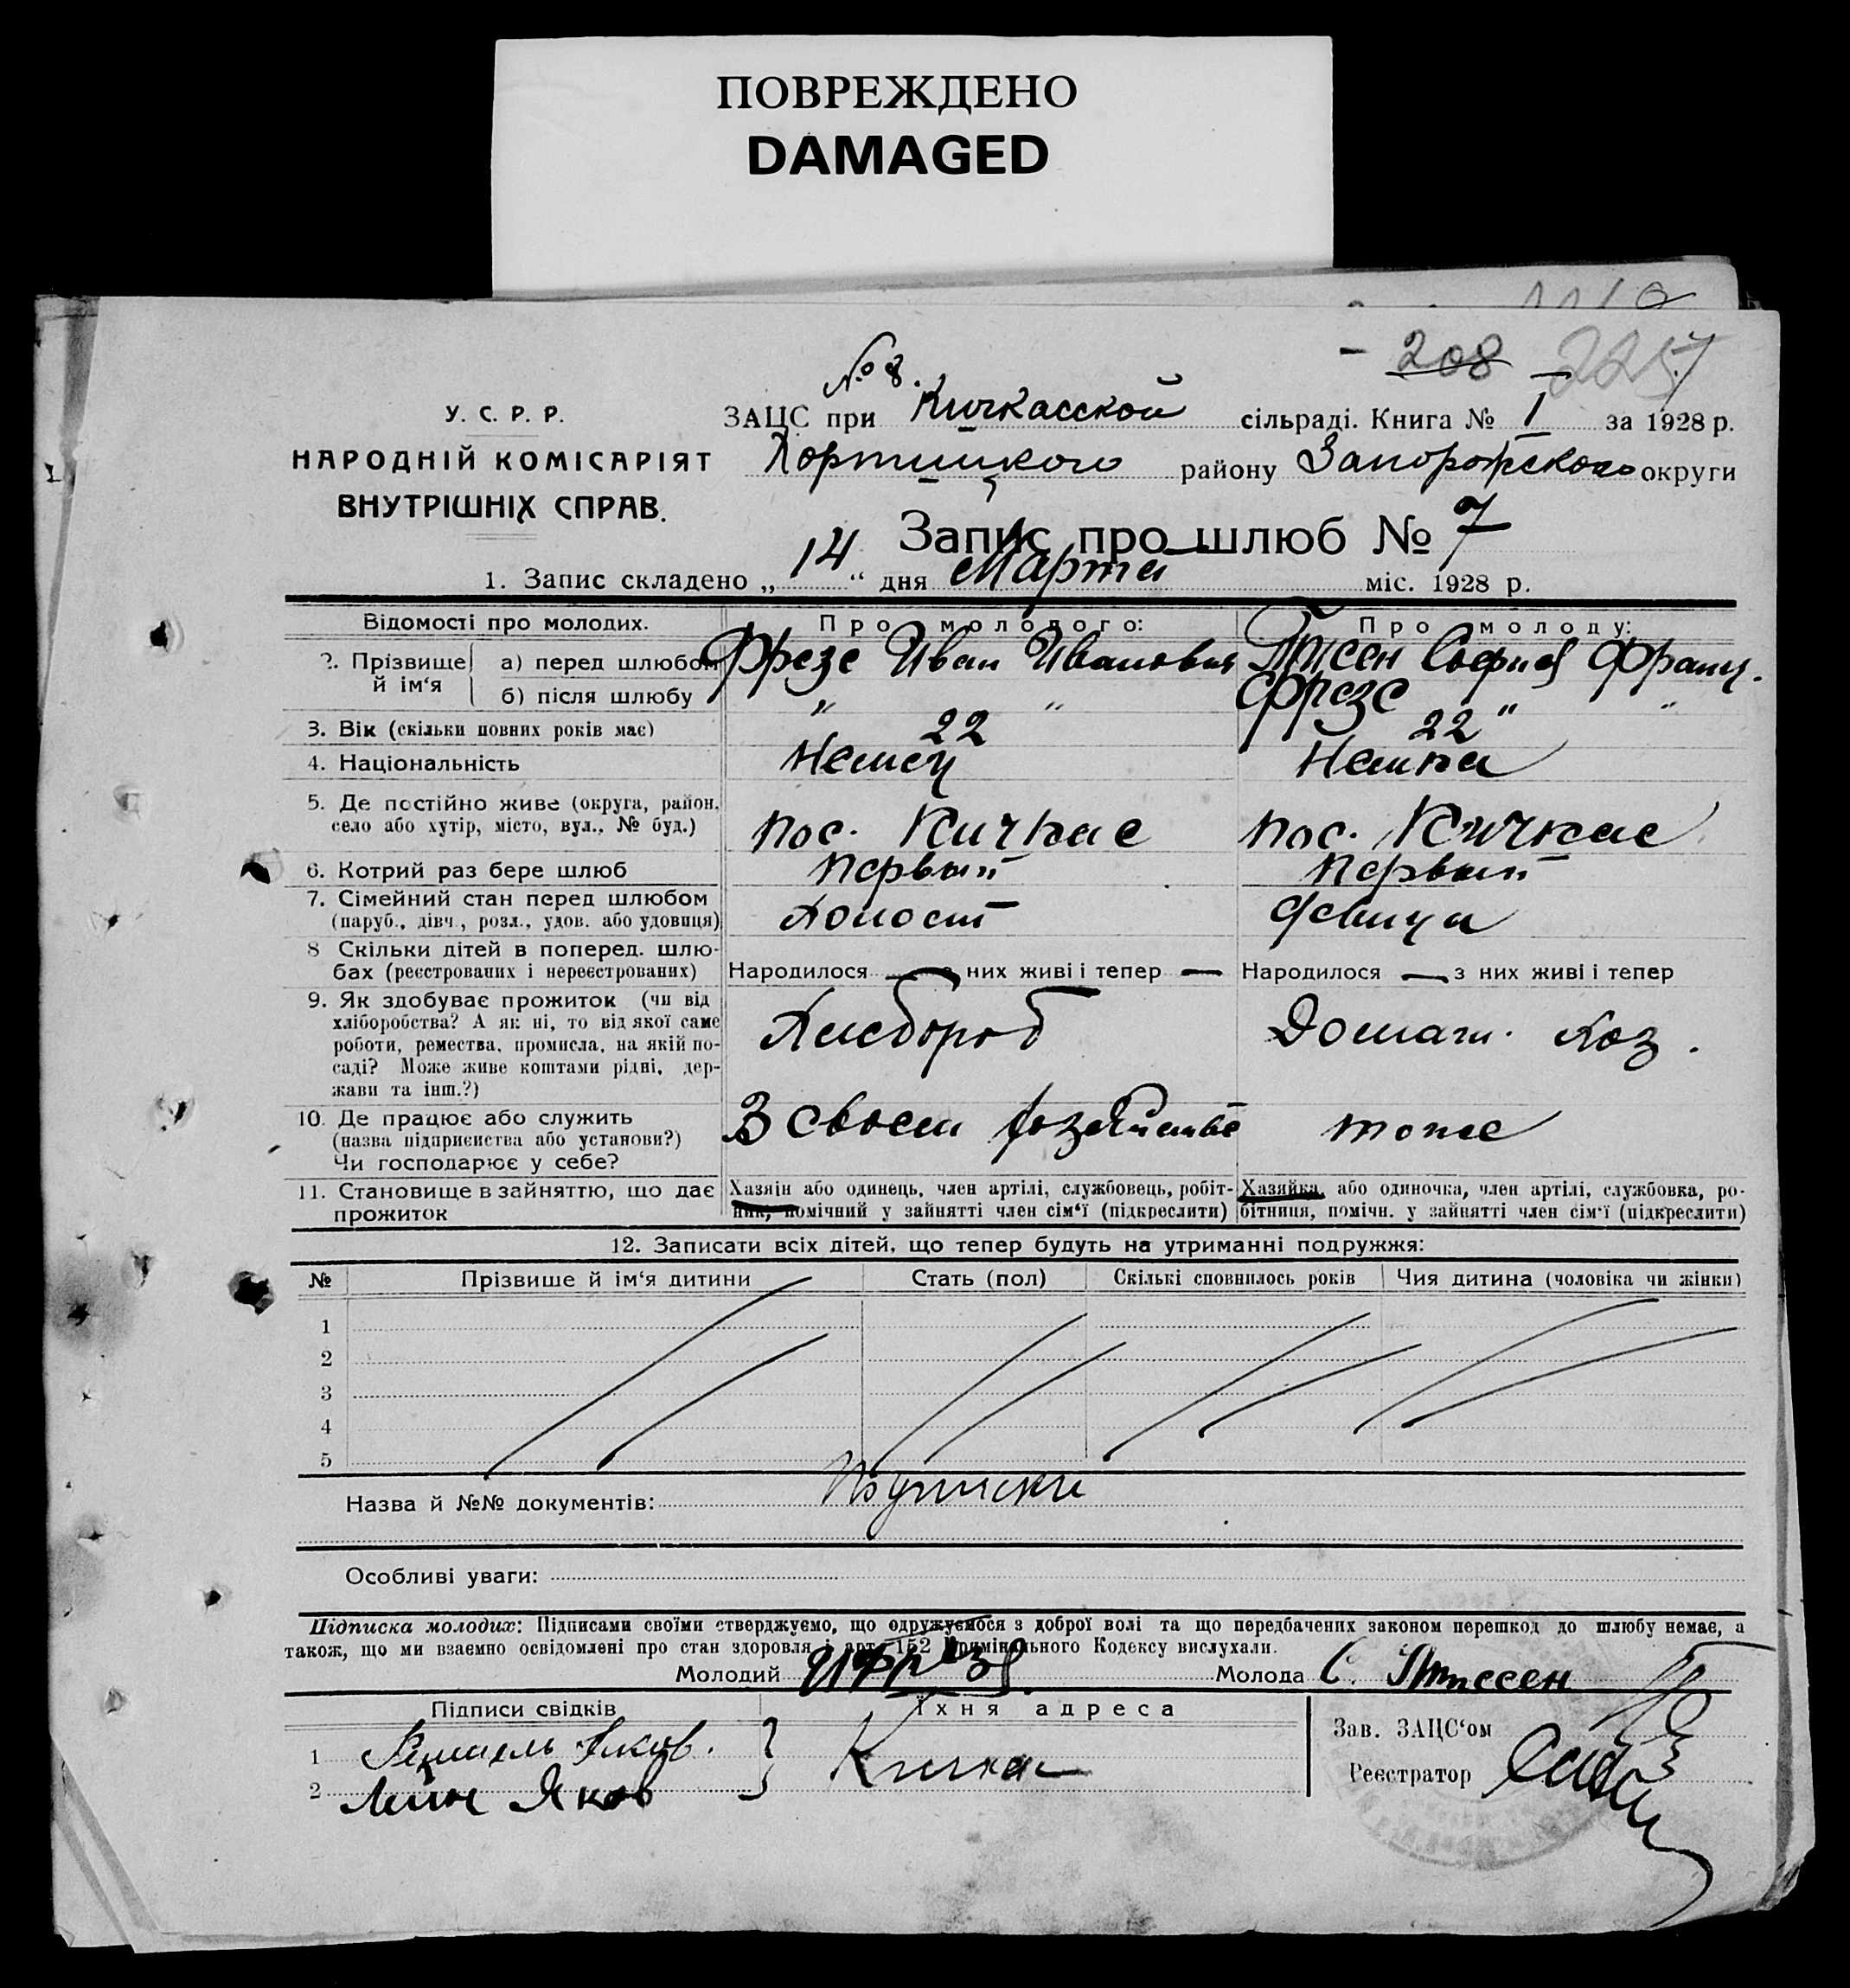 ПОВРЕЖДЕНО
DAMAGED
208 225
№ 8.
У. С. Р. Р.
НАРОДНІЙ КОМІСАРІЯТ
ВНУТРІШНІХ СПРАВ.
ЗАЦС при Кичкасской сільраді. Книга № I за 1928 р.
Хортицкого району Запорожского округи
Запис про шлюб № 7
1. Запис складено „ 14 “ дня Марта міс. 1928 р.
Відомості про молодих. Про молодого: Про молоду:
2. Прізвище й ім‘я а) перед шлюбом Фрезе Иван Иванович Тиссен София Франц.
б) після шлюбу " " Фрезе " "
3. Вік (скільки повних років має) 22 22
4. Національність Немец Немка
5. Де постійно живе (округа, район,
село або хутір, місто, вул., № буд.) пос. Кичкас пос. Кичкас
6. Котрий раз бере шлюб Первый Первый
7. Сімейний стан перед шлюбом
(паруб., дівч., розл., удов. або удовиця) Холост девица
8 Скільки дітей в поперед. шлю-
бах (реєстрованих і нереєстрованих) Народилося — з них живі і тепер — Народилося — з них живі і тепер
9. Як здобуває прожиток (чи від
хліборобства? А як ні, то від якої саме
роботи, ремества, промисла, на якій по-
саді? Може живе коштами рідні, дер-
жави та інш.?) Хлебороб Домаш. хоз.
10. Де працює або служить
(назва підприємства або установи?)
Чи господарює у себе? В своем хозяйстве тоже
11. Становище в зайняттю, що дає
прожиток
Хазяін або одинець, член артілі, службовець, робіт-
ник, помічний у зайнятті член сім‘ї (підкреслити)
Хазяйка, або одиночка, член артілі, службовка, ро-
бітниця, помічн. у зайнятті член сім‘ї (підкреслити)
12. Записати всіх дітей, що тепер будуть на утриманні подружжя:
№ Прізвише й ім‘я дитини Стать (пол) Скількі сповнилось років Чия дитина (чоловіка чи жінки)
1
2
3
4
5
Назва й №№ документів: Подписки
Особливі уваги:
Підписка молодих: Підписами своїми стверджуємо, що одружуємося з доброї волі та що передбачених законом перешкод до шлюбу немає, а
також, що ми взаємно освідомлені про стан здоровля і арт. 152 Кримінального Кодексу вислухали.
Молодий И Фрезе Молода С. Тиссен
Підписи свідків Їхня адреса
1 Яков.
2 Яков
Кичкас
Зав. ЗАЦС‘ом
Реєстратор